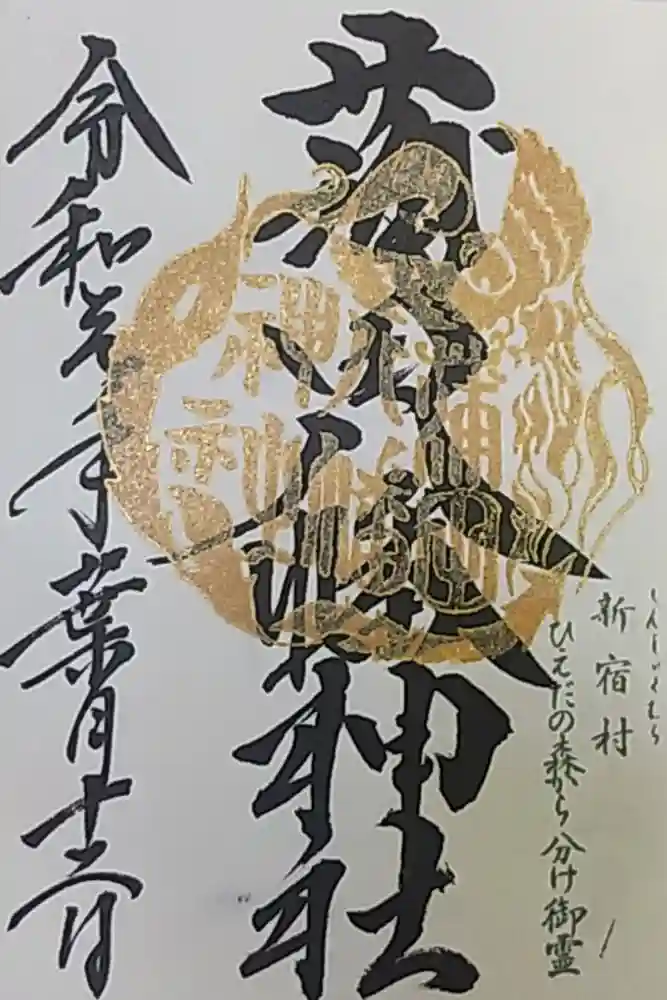 しんしゅくむら
新宿村
ひえだの森から分け御霊
蒲田八幡神社
令和元年葉月十二日